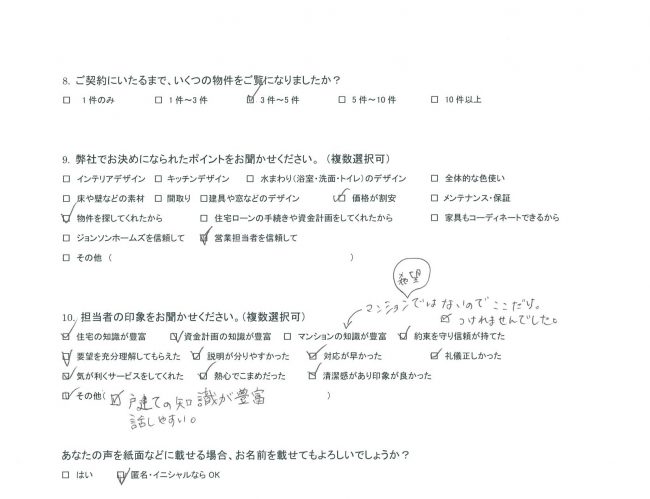 8. ご契約にいたるまで、いくつの物件をご覧になりましたか？
□ 1件のみ □ 1件～3件 ☑ 3件～5件 □ 5件～10件 □ 10件以上
9. 弊社でお決めになられたポイントをお聞かせください。（複数選択可）
□ インテリアデザイン □ キッチンデザイン □ 水まわり（浴室・洗面・トイレ）のデザイン □ 全体的な色使い
□ 床や壁などの素材 □ 間取り □ 建具や窓などのデザイン ☑ 価格が割安 □ メンテナンス・保証
☑ 物件を探してくれたから □ 住宅ローンの手続きや資金計画をしてくれたから □ 家具もコーディネートできるから
□ ジョンソンホームズを信頼して ☑ 営業担当者を信頼して
□ その他（ ）
希望
マンションではないので ここだけ。
☑ つけれませんでした。
10. 担当者の印象をお聞かせください。（複数選択可）
☑ 住宅の知識が豊富 ☑ 資金計画の知識が豊富 □ マンションの知識が豊富 ☑ 約束を守り信頼が持てた
☑ 要望を充分理解してもらえた ☑ 説明が分りやすかった ☑ 対応が早かった ☑ 礼儀正しかった
☑ 気が利くサービスをしてくれた ☑ 熱心でこまめだった ☑ 清潔感があり印象が良かった
☑ その他（ ☑ 戸建ての知識が豊富 ）
話しやすい。
あなたの声を紙面などに載せる場合、お名前を載せてもよろしいでしょうか？
□ はい ☑ 匿名・イニシャルなら OK